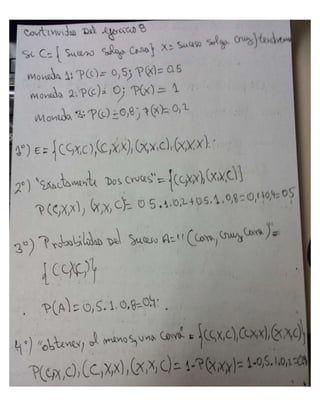 Continuidad del ejercicio 8
Si C={Suceso salga Cara} X= Suceso salga Cruz} tendremos
moneda 1: P(C)= 0,5; P(X)= 0.5
moneda 2: P(C)= 0; P(X) = 1
Moneda 3: P(C)=0,8; P(X)= 0,2
1º) E = {(C,X,C),(C,X,X),(X,X,C),(X,X,X)}.
2º) "Exactamente Dos cruces" = {(C,X,X),(X,X,C)}
P(C,X,X), (X,X,C)= 0 5.1.0,2+0,5.1.0,8=0,1+0,4=0,5
3º) Probabilidad Del Suceso A="(Cara, cruz, cara)"=
{(C,X,C)}
P(A)=0,5.1.0,8=0,4.
4º) "obtener, al menos, una cara" = {(C,X,C),(C,X,X),(X,X,C)}
P(C,X,C),(C,X,X),(X,X,C)=1-P(X,X,X)=1-0,5.1.0,2=0,9